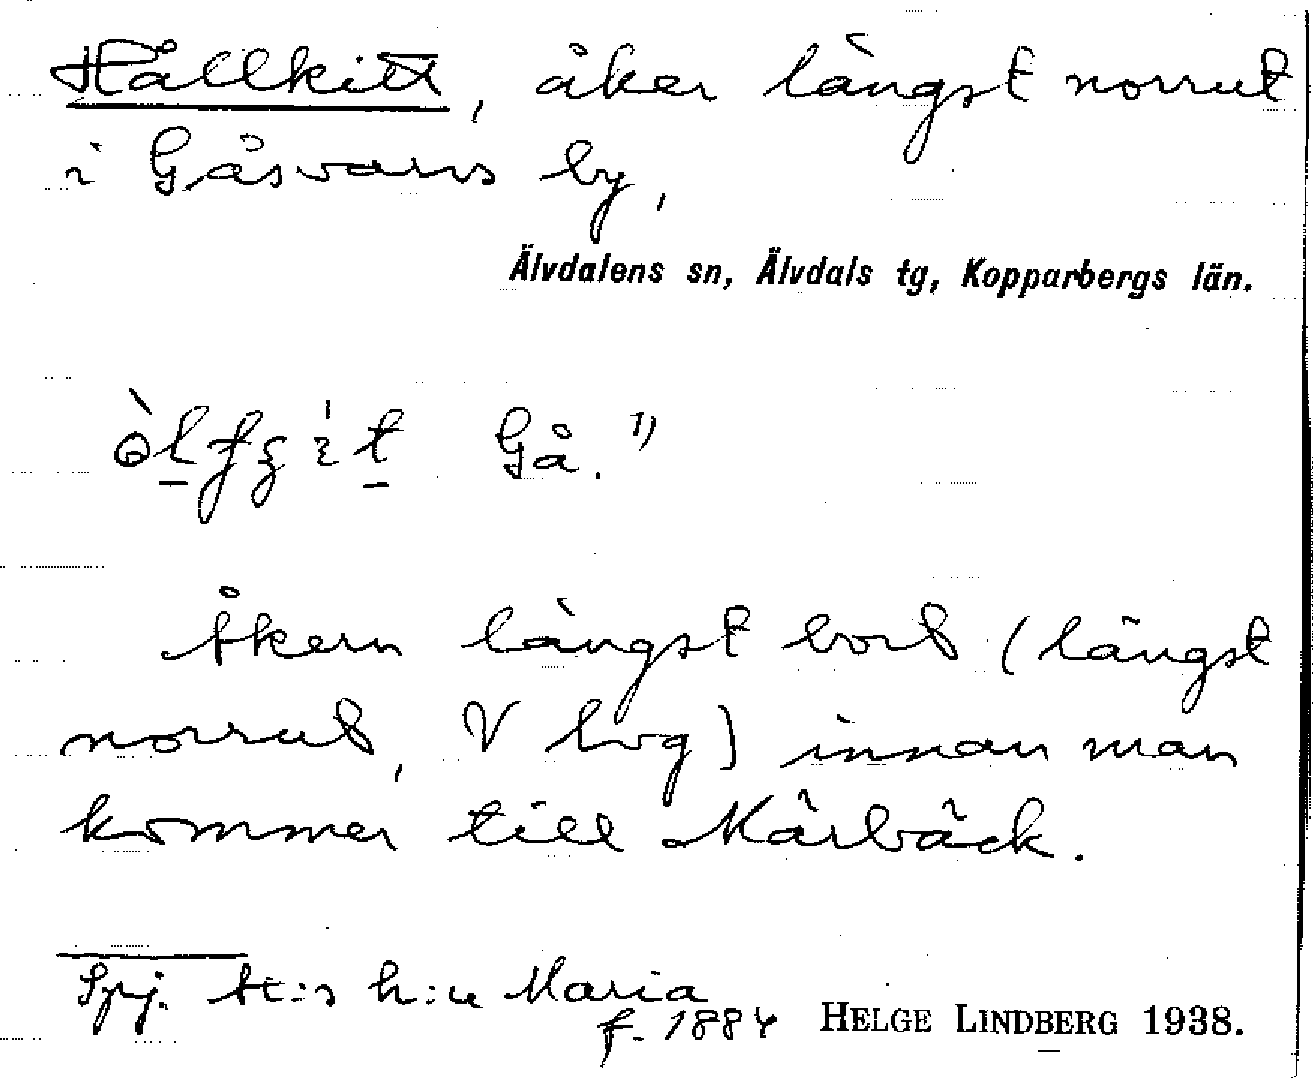 Hållkitt, åker längst norrut
i Gåsvarvs by,
Älvdalens sn, Älvdals tg, Kopparbergs län.
Gå. 1)
Åkern längst bort (längst
norrut, V lvg) innan man
kommer till Märbäck.
Spj. h:u Maria
f. 1884 HELGE LINDBERG 1938.